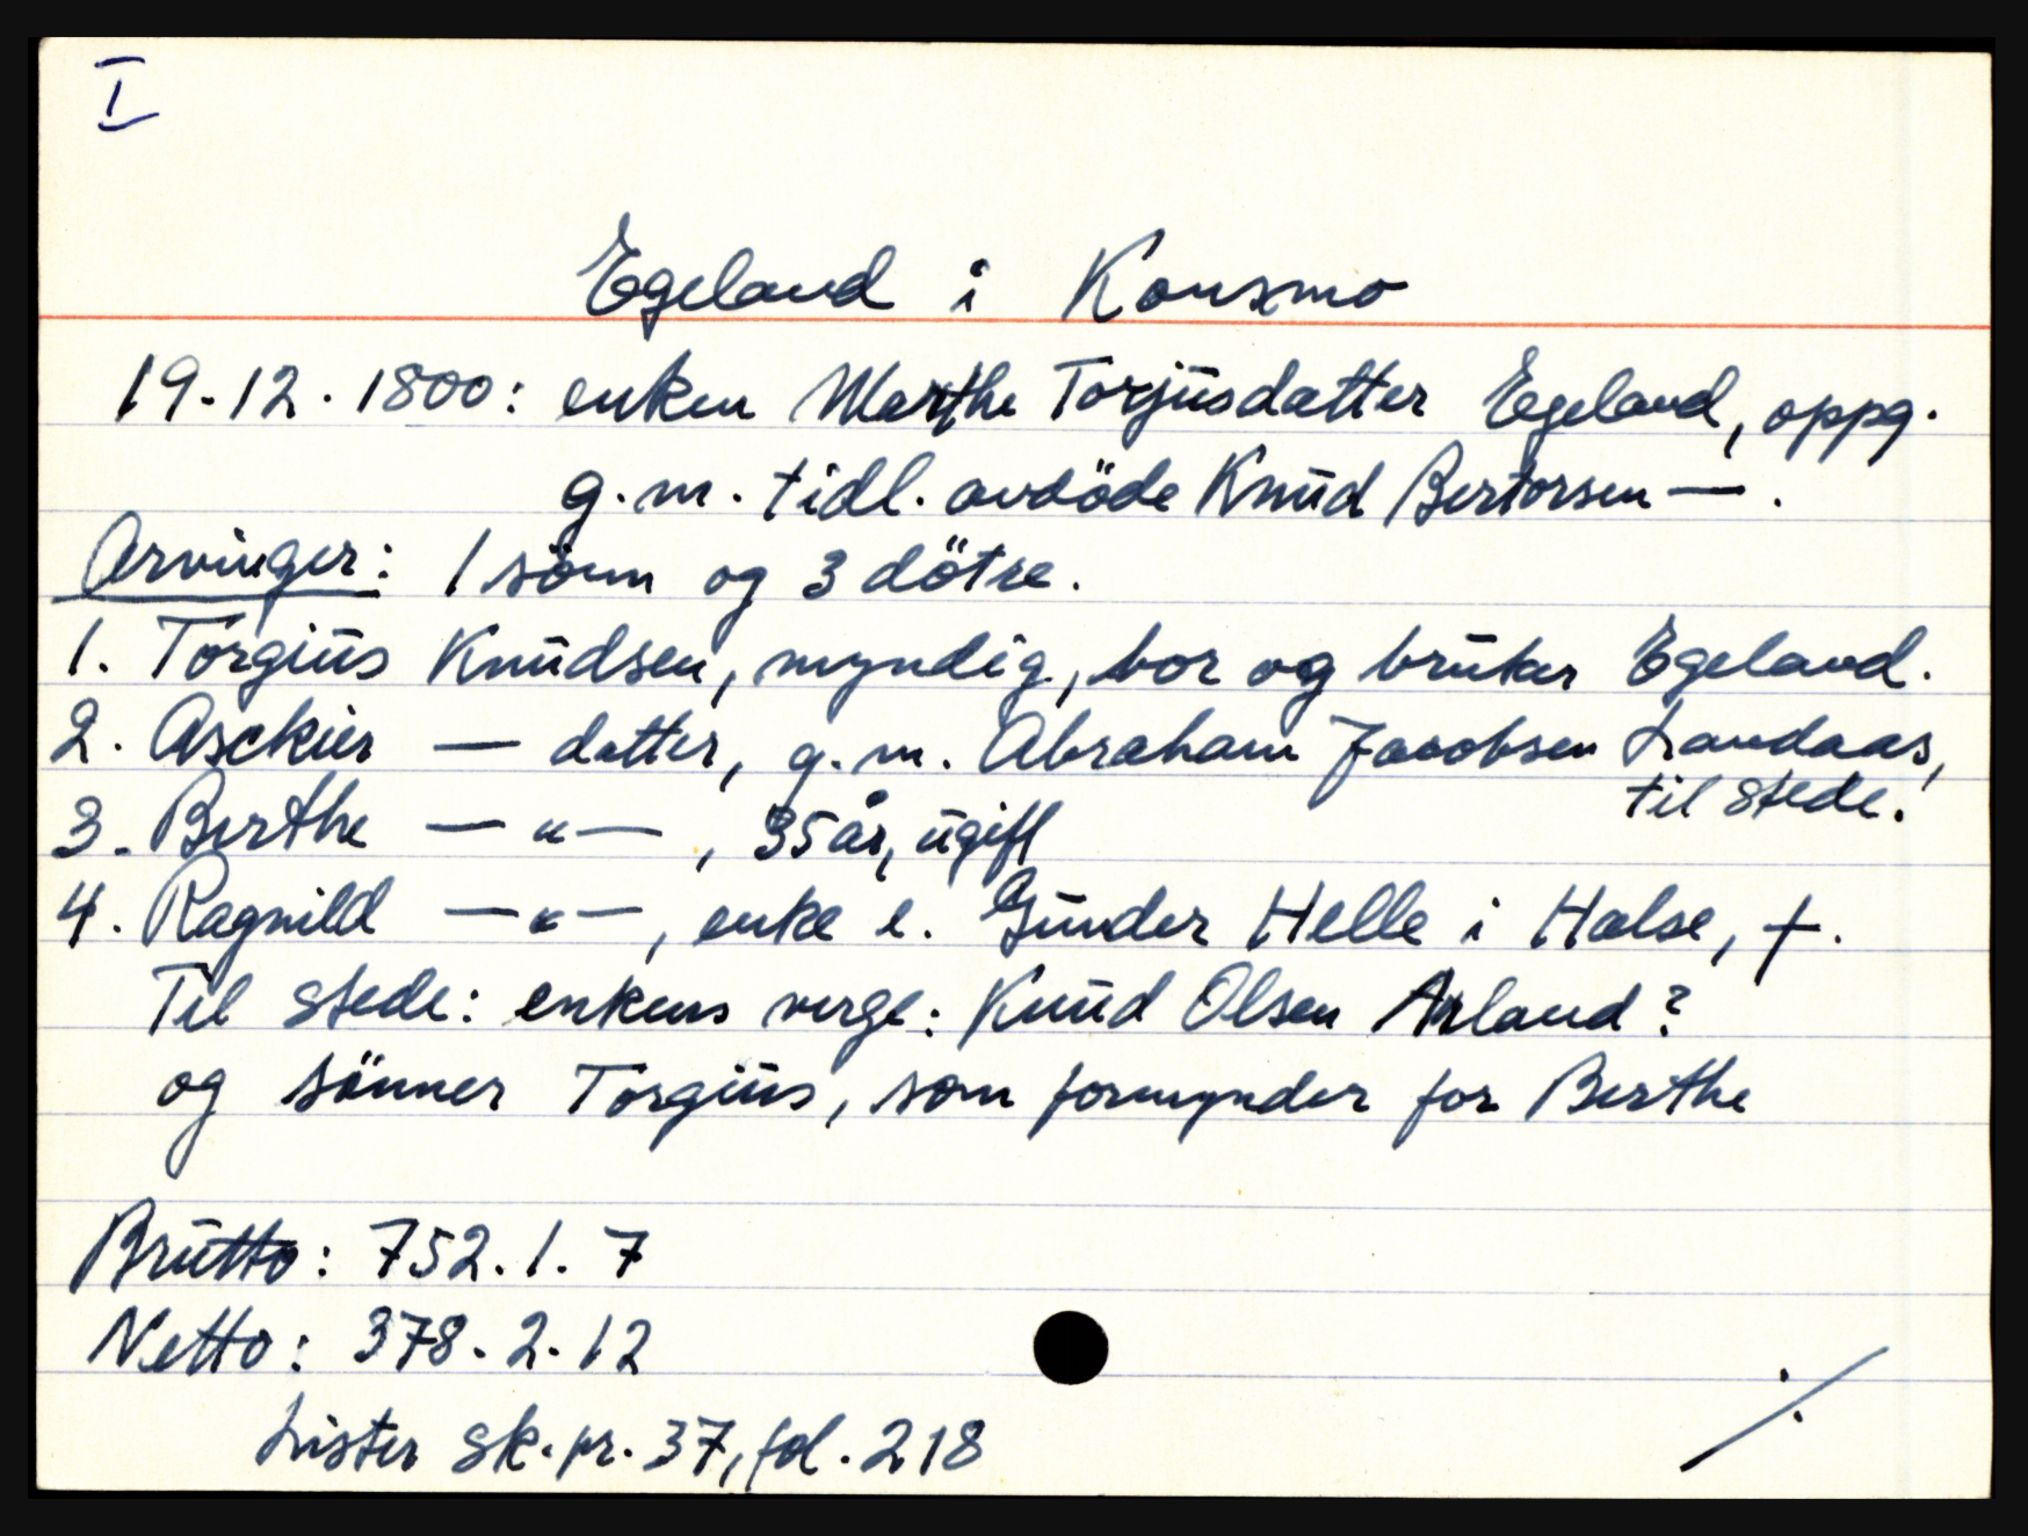 I
Egeland i Konsmo
19.12.1800: enken Marthe Torjusdatter Egeland, oppg.
g.m. tidl. avdöde Knud Bertorsen — .
Arvinger: 1 sönn og 3 dötre.
1. Torgius Knudsen, myndig, bor og bruker Egeland.
2. Asckier — datter, g.m. Abraham Jacobsen Landaas,
til stede.
3. Berthe — " — , 35 år, ugift
4. Ragnild — " — , enke e. Gunder Helle i Halse, †.
Til stede: enkens verge: Knud Olsen Arland?
og sönner Torgius, som formynder for Berthe
Brutto: 752.1.7
Netto: 378.2.12
Lister sk.pr. 37, fol. 218
./.